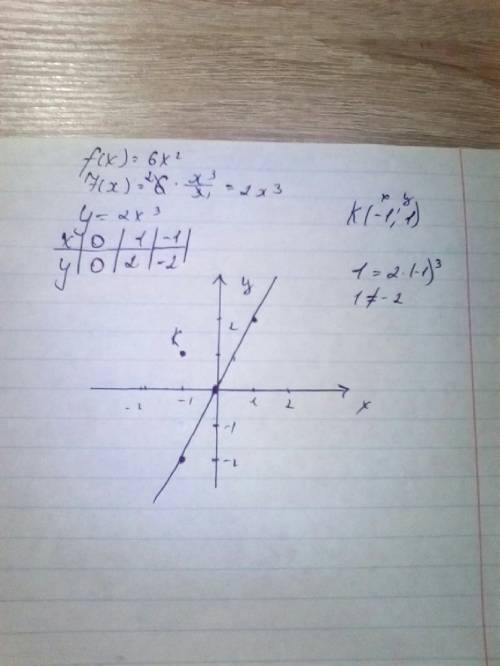 f(x) = 6x²
F(x) = ²6 · x³/3₁ = 2x³
y = 2x³
x | 0 | 1 | -1 |
y | 0 | 2 | -2 |
x y
K(-1; 1)
1 = 2·(-1)³
1 ≠ -2
y
2
K
-2 -1 1 2 x
-1
-2